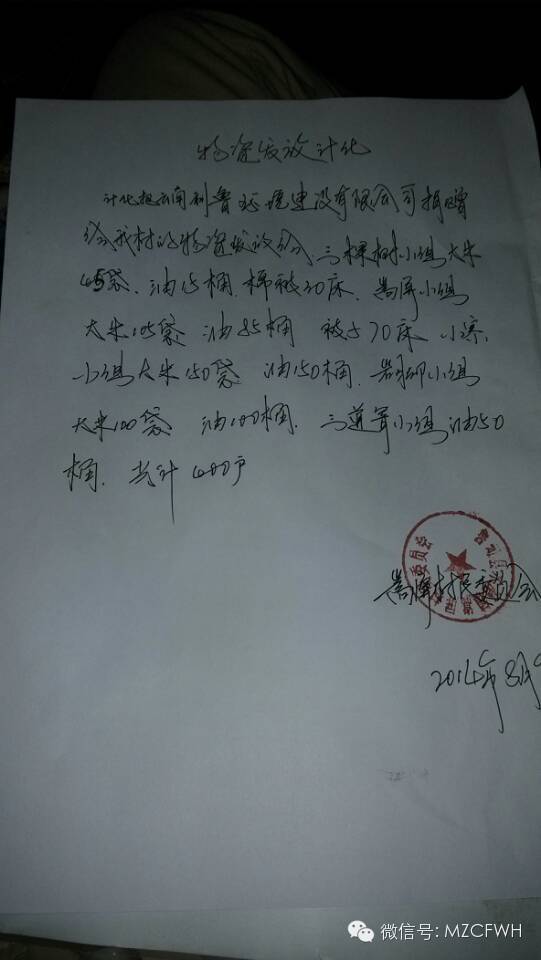 物资发放计化
计化把云南利鲁环境建设有限公司捐赠
给我村的物资发放给三棵树小组大米
45袋、油15桶、棉被30床、嵩屏小组
大米105袋 油85桶 被子70床 小寨
小组大米150袋 油150桶、岩脚小组
大米100袋 油100桶、三道箐小组油50
桶、共计400户
嵩屏村民委员会
2014年8月9
微信号: MZCFWH